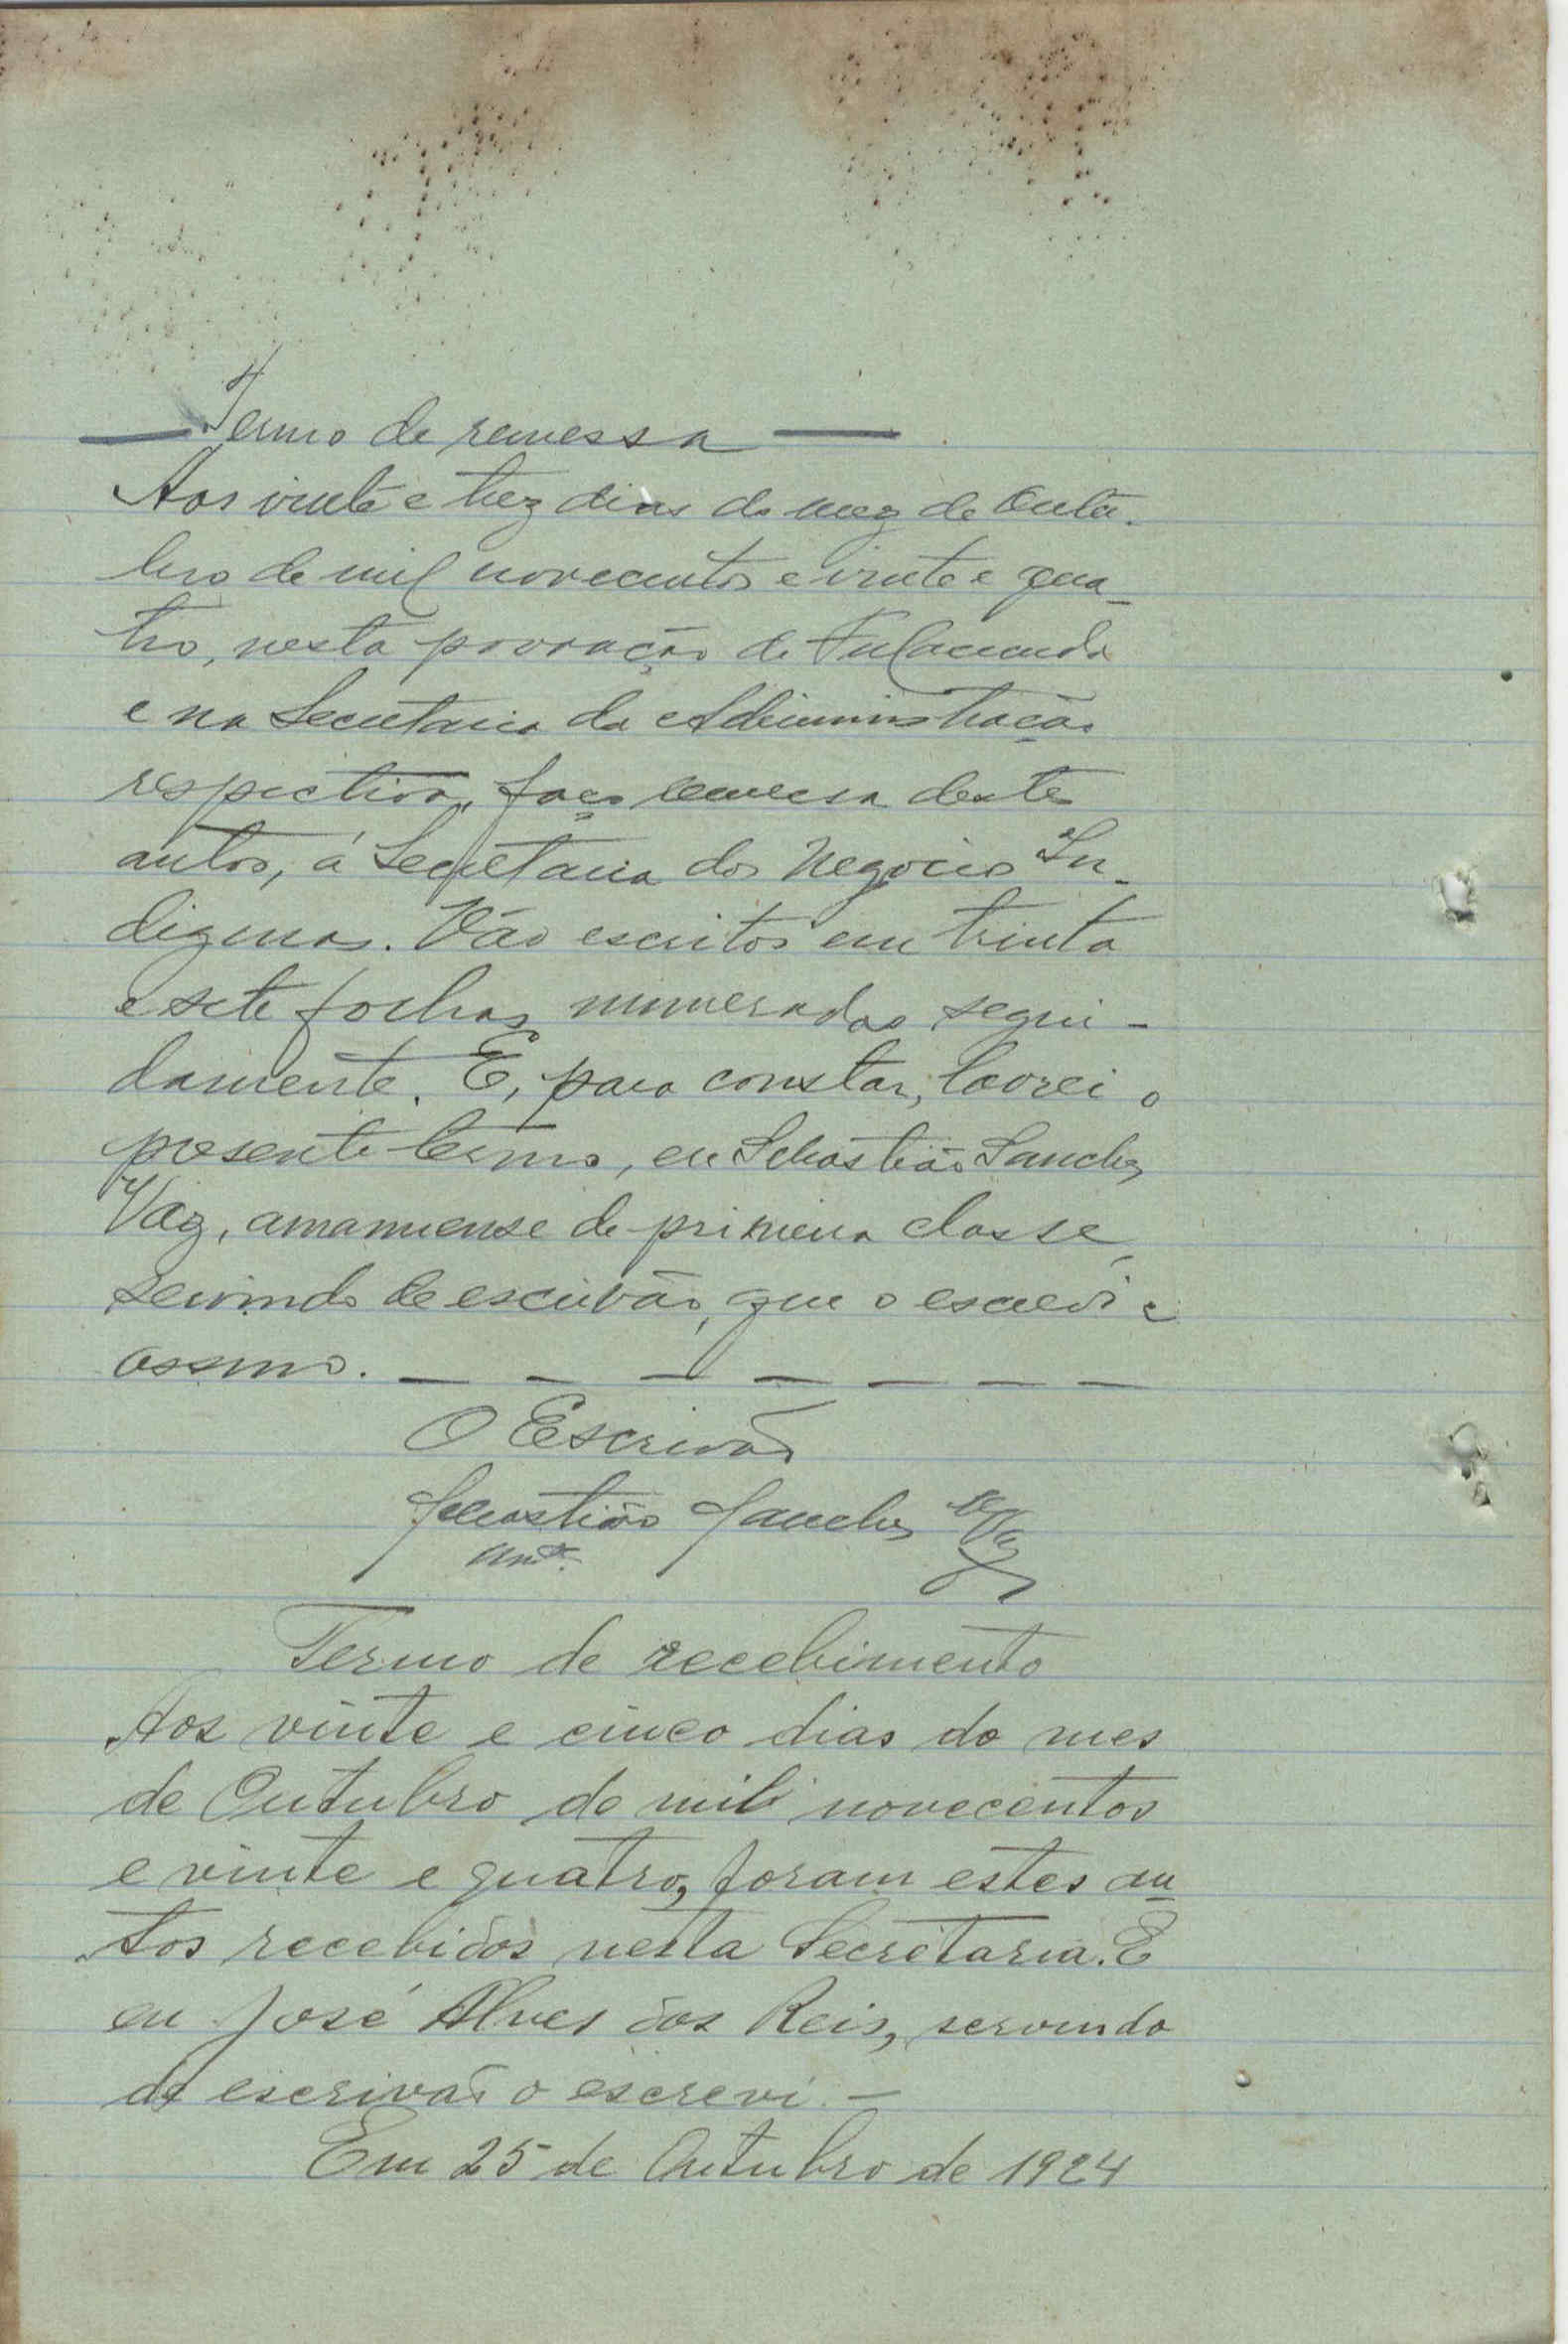 — Termo de remessa —
Aos vinte e trez dias do mez de Outu-
bro de mil novecentos e vinte e qua-
tro, nesta povoação de Fulacunda
e na Secretaria da Administração
respectiva, faço remessa destes
autos, á Secretaria dos Negocios In-
digenas. Vão escritos em trinta
e sete folhas numeradas segui-
damente. E, para constar, lavrei o
presente termo, eu Sebastião Sanches
Vaz, amanuense de primeira classe,
servindo de escrivão, que o escrevi e
assino. — — — — — — —
O Escrivão
Sebastião Sanches Vaz
Termo de recebimento
Aos vinte e cinco dias do mes
de Outubro de mil novecentos
e vinte e quatro, foram estes au-
tos recebidos nesta Secretaria. E
eu José Alves dos Reis, servindo
de escrivão o escrevi. —
Em 25 de Outubro de 1924